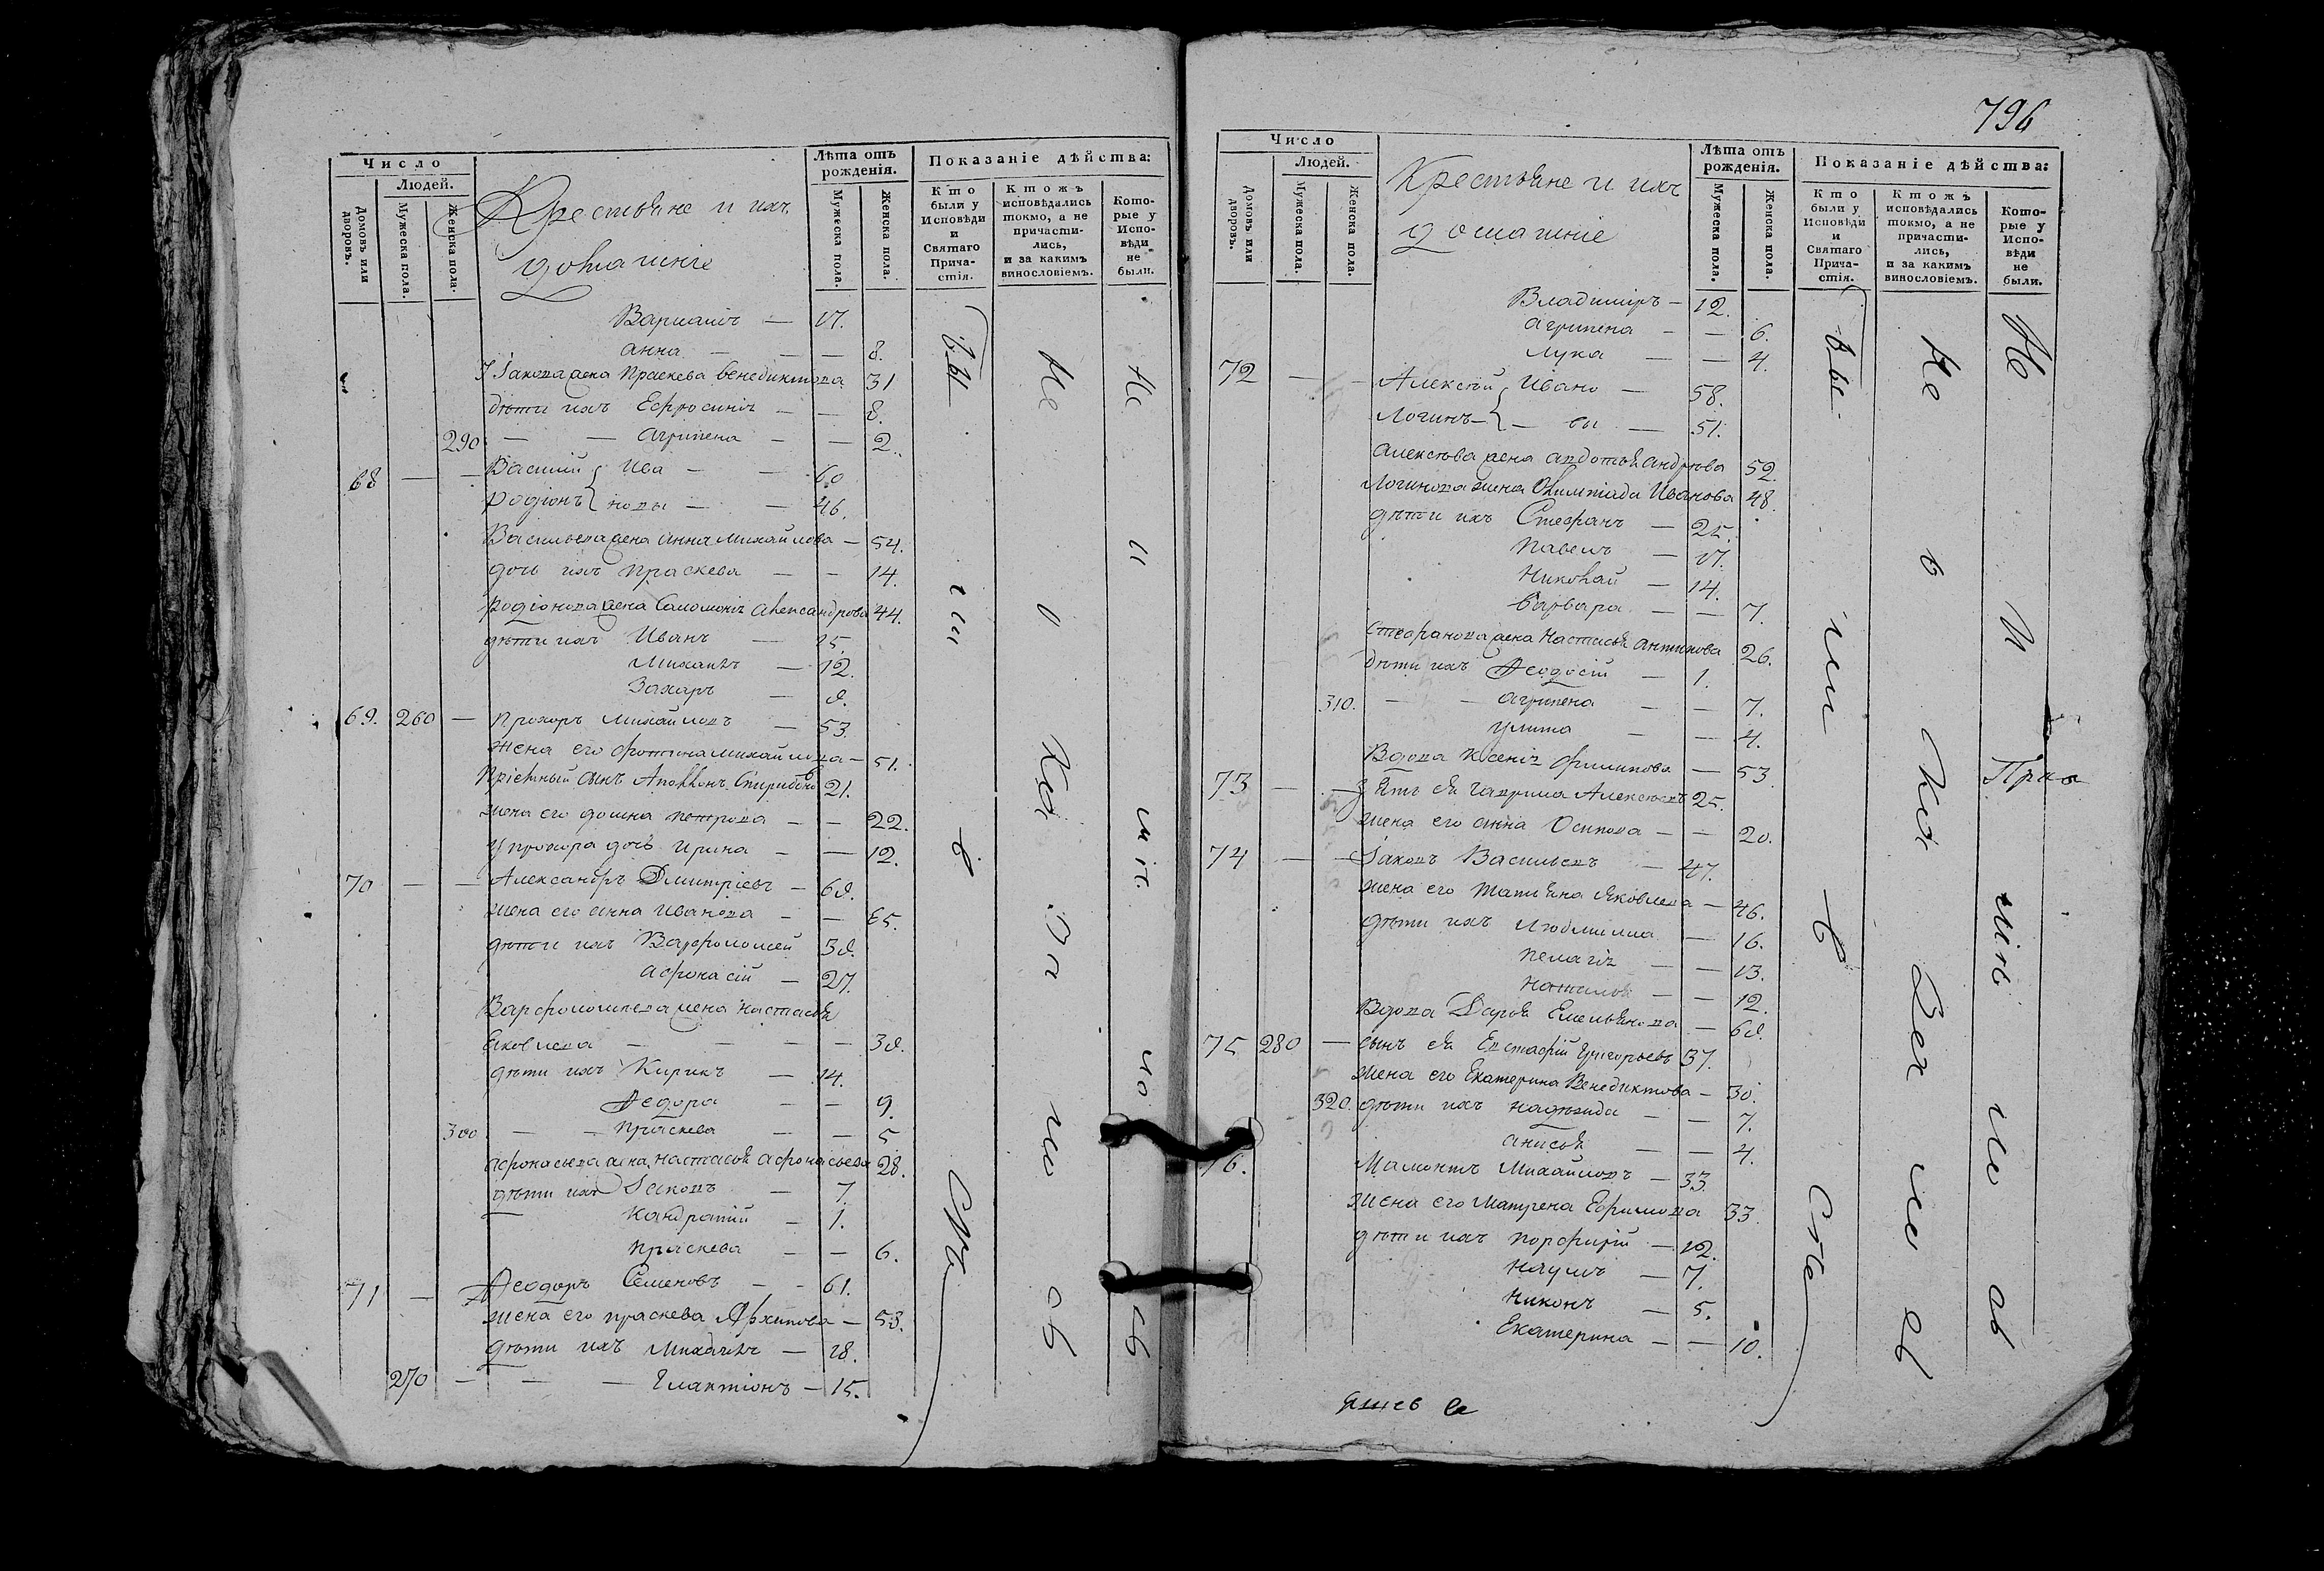 796
Число
Людей.
Домовъ или дворовъ.
Мужеска пола.
Женска пола.
Крестьяне и ихъ
домашніе
Лѣта отъ рожденія.
Мужеска пола.
Женска пола.
Показаніе дѣйства:
Кто были у Исповѣди и Святаго Прича-стія.
Ктожъ исповѣдались токмо, а не причасти-лись, и за какимъ винословіемъ.
Кото-рые у Испо-вѣди не были.
Варлаамъ — 17.
Анна — — 8.
Іакова жена Праскева Венедиктова 31
дѣти ихъ Ефросинія — — 8.
290 — — Агрипена — — 2.
68 — — Василий { Ива — — 60
Родіонъ { новы — — 46.
Васильева жена Анна Михайлова — 54.
дочь ихъ Праскева — — 14.
Родіонова жена Саломонія Александрова 44.
дѣти ихъ Иванъ — 25.
Михаилъ — 12.
Захаръ — 8.
69. 260 — Прохоръ Михайловъ — 53.
жена его Фотина Михайлова — 51.
Пріемный сынъ Аполлонъ Спиридо 21.
жена его Домна Петрова — — 22.
У Прохора дочь Ирина — — 12.
70 — — Александръ Дмитріевъ — 68.
жена его Анна Иванова — — 65.
дѣти ихъ Варфоломей 38.
Афонасій — 27.
Варфоломеева жена Настасья
Яковлева — — — — 38.
дѣти ихъ Кирикъ — 14.
Ѳедора — — 9.
300 — — Праскева — — 5
Афонасьева жена Настасья Афонасьева 28.
дѣти ихъ Іаковъ — 7.
Кандратій — 1.
Праскева — — 6.
71 — Ѳеодоръ Семеновъ — — 61.
жена его Праскева Архипова — 53.
дѣти ихъ Михаилъ — 18.
270 — — — Галактіонъ — 15.
Число
Людей.
Домовъ или дворовъ.
Мужеска пола.
Женска пола.
Крестьяне и ихъ
домашніе
Лѣта отъ рожденія.
Мужеска пола.
Женска пола.
Показаніе дѣйства:
Кто были у Исповѣди и Святаго Прича-стія.
Ктожъ исповѣдались токмо, а не причасти-лись, и за какимъ винословіемъ.
Кото-рые у Испо-вѣди не были.
Владимиръ — 12.
Агрипена — — 6.
Лука — — 4.
72 — — Алексѣй { Ивано — 58.
Логинъ — { — вы — 51.
Алексѣева жена Авдотья Андрѣева 52.
Логинова жена Олимпіада Иванова 48.
дѣти ихъ Стефанъ — 25.
Павелъ — 17.
Николай — 14.
Варвара — — 7.
Стефанова жена Настасья Антипова 26.
дѣти ихъ Ѳеодосій — 1.
310. — — Агрипена — — 7.
Улита — — 4.
Вдова Ксенія Филипова — 53.
73 — — Зять ея Гаврила Алексѣевъ 25.
жена его Анна Осипова — — 20.
74 — — Іаковъ Васильевъ — 47.
жена его Татьяна Яковлева — 46.
дѣти ихъ Людмилла — 16.
Пелагія — — 13.
Наталья — — 12.
Вдова Дарья Емельянова — 68.
75 280 — сынъ ея Евстафій Григорьевъ 37.
жена его Екатерина Венедиктова — 30.
320. дѣти ихъ Надежда — — 7.
Анисья — — 4.
76. Мамонтъ Михайловъ — 33.
жена его Матрена Ефимова 33.
дѣти ихъ Порфирій — 12.
Наумъ — 7.
Никонъ — 5.
Екатерина — — 10.